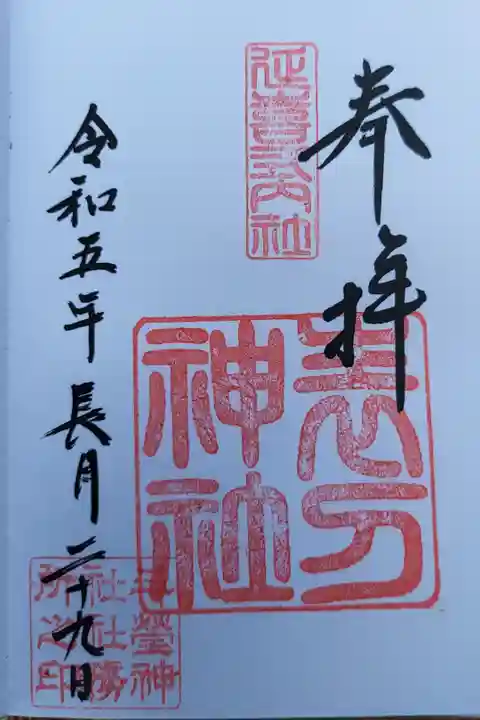 奉拝
延喜式内社
表刀
神社
令和五年長月二十九日
瑩神
社社務
所之印